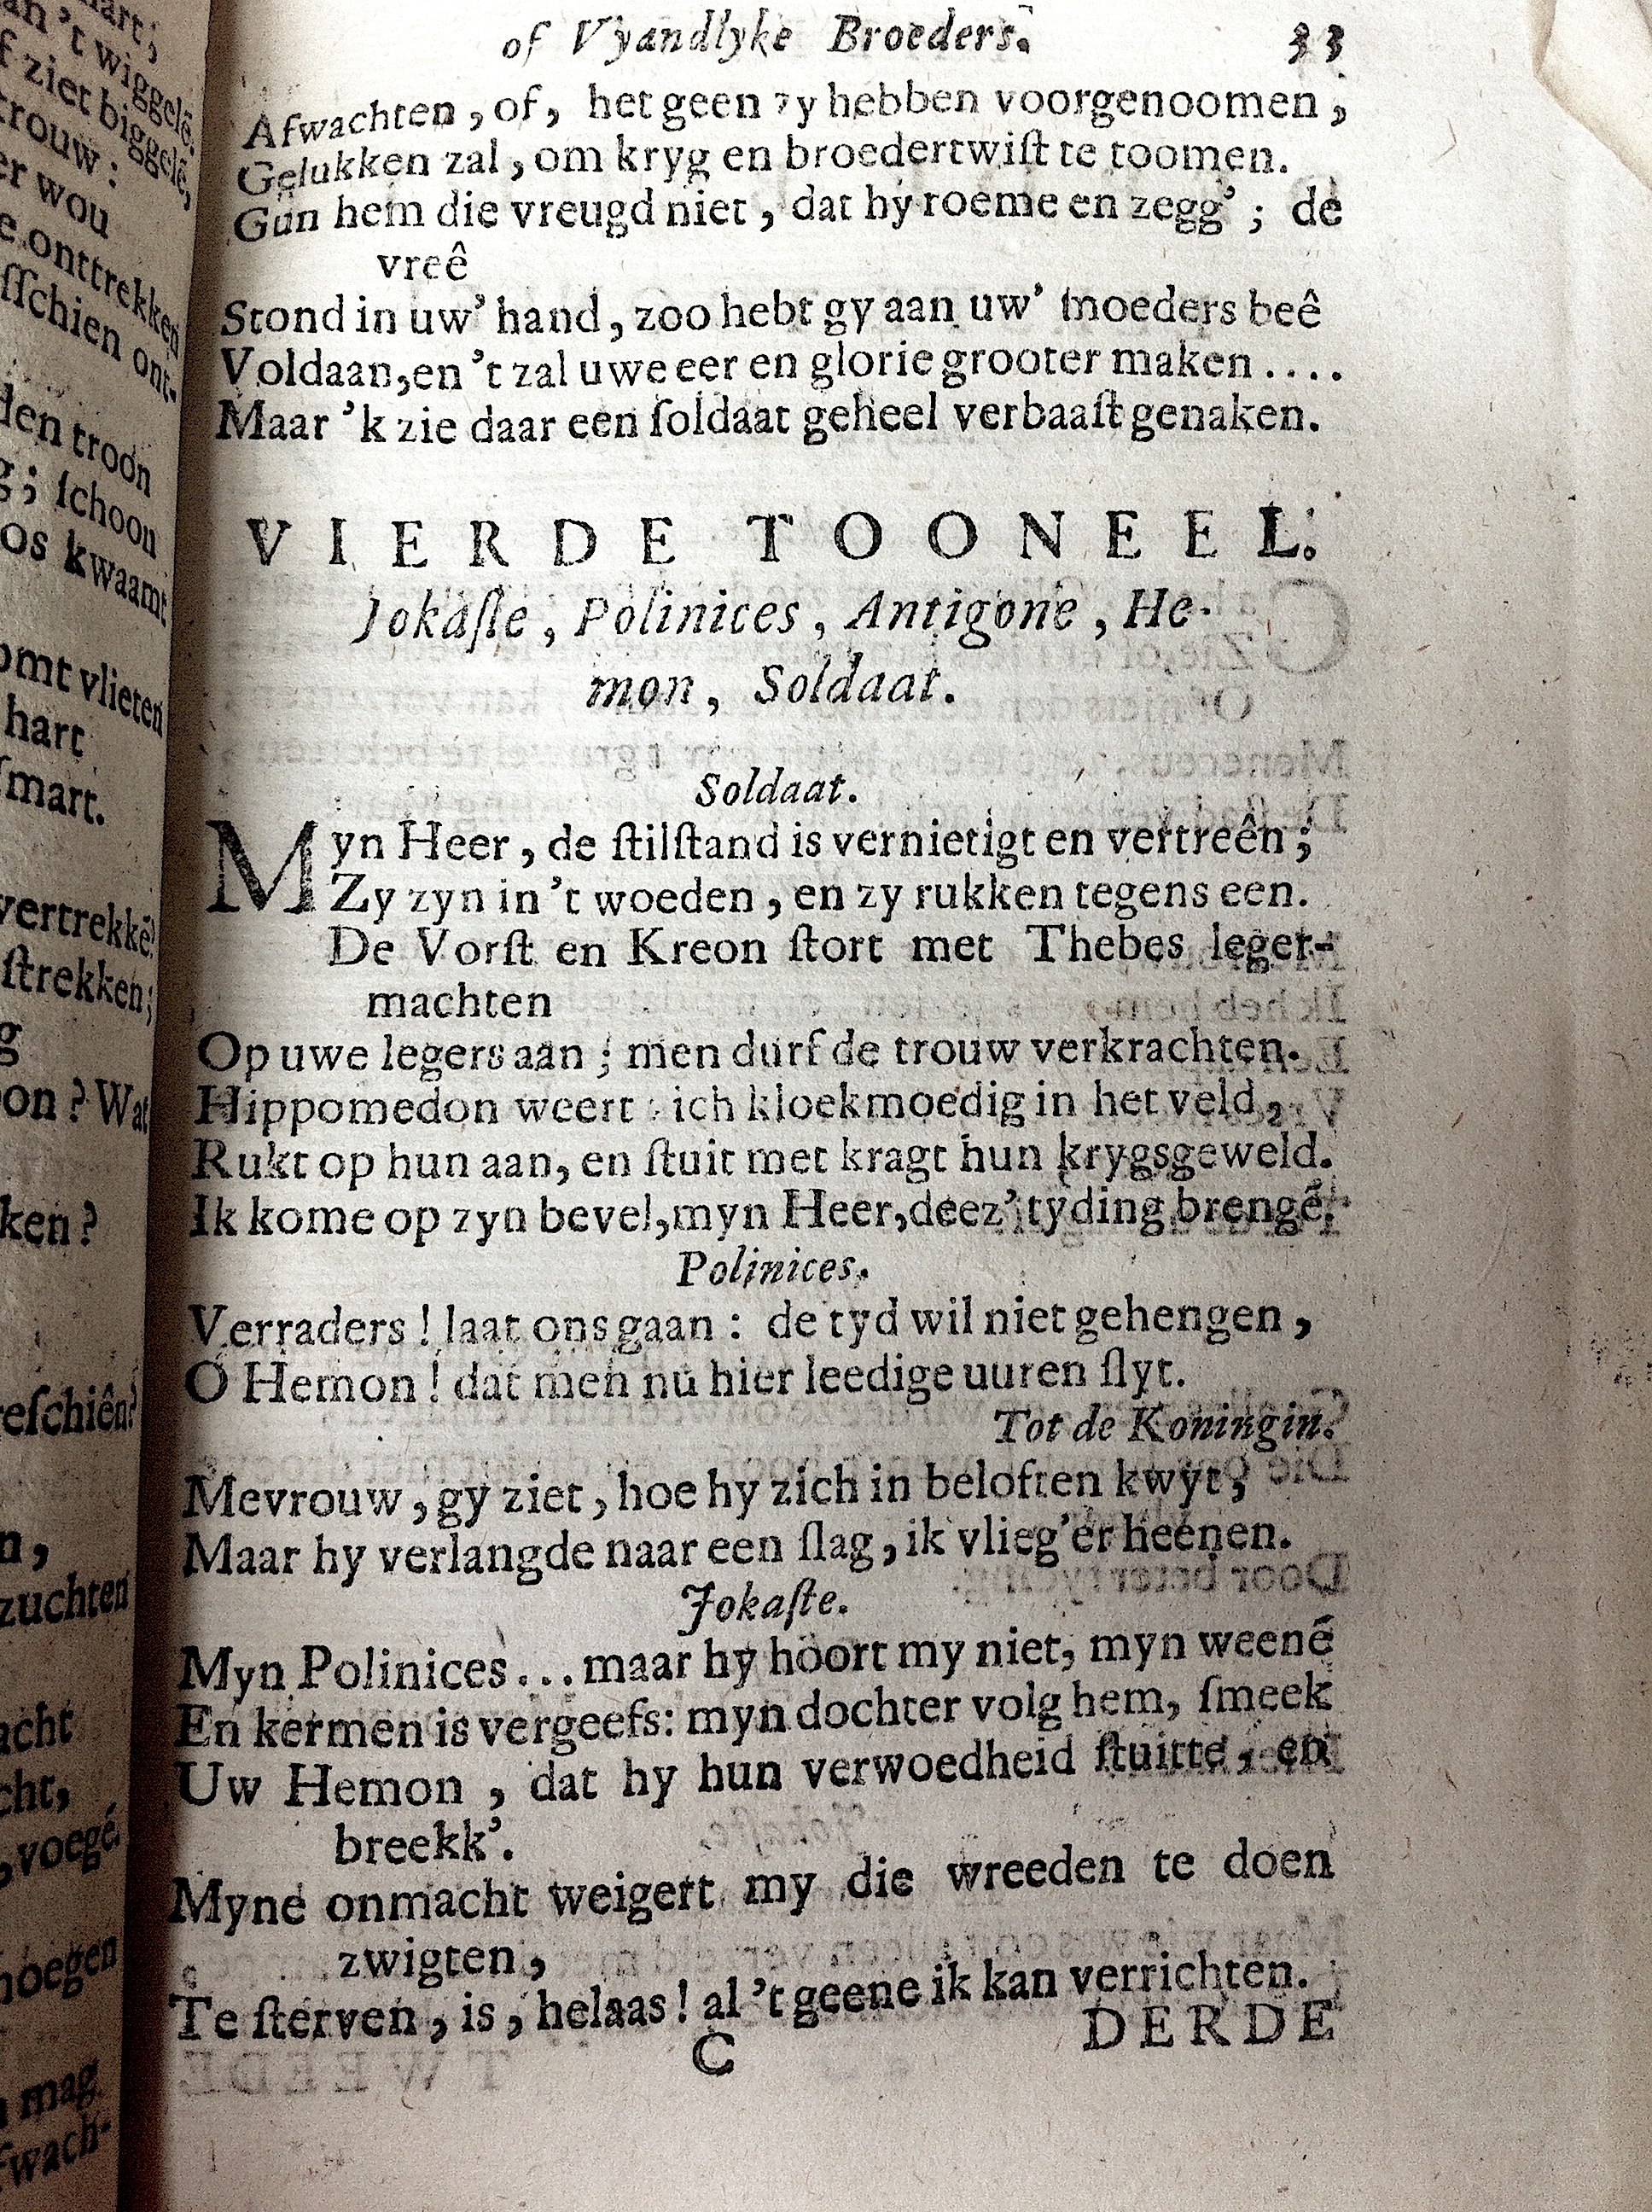 of Vyandlyke Broeders. 33
Afwachten, of, het geen zy hebben voorgenoomen,
Gelukken zal, om kryg en broedertwiſt te toomen.
Gun hem die vreugd niet, dat hy roeme en zegg'; de
vreê
Stond in uw' hand, zoo hebt gy aan uw' moeders beê
Voldaan, en 't zal uwe eer en glorie grooter maken....
Maar 'k zie daar een ſoldaat geheel verbaaſt genaken.
VIERDE TOONEEL.
Jokaſte, Polinices, Antigone, He-
mon, Soldaat.
Soldaat.
Myn Heer, de ſtilſtand is vernietigt en vertreên;
Zy zyn in 't woeden, en zy rukken tegens een.
De Vorſt en Kreon ſtort met Thebes leger-
machten
Op uwe legers aan; men durf de trouw verkrachten.
Hippomedon weert zich kloekmoedig in het veld,
Rukt op hun aan, en ſtuit met kragt hun krygsgeweld.
Ik kome op zyn bevel, myn Heer, deez' tyding brengē.
Polinices.
Verraders! laat ons gaan: de tyd wil niet gehengen,
O Hemon! dat men nu hier leedige uuren ſlyt.
Tot de Koningin.
Mevrouw, gy ziet, hoe hy zich in beloften kwyt,
Maar hy verlangde naar een ſlag, ik vlieg'er heenen.
Jokaſte.
Myn Polinices... maar hy hoort my niet, myn weenē
En kermen is vergeefs: myn dochter volg hem, ſmeek
Uw Hemon, dat hy hun verwoedheid ſtuitte, en
breekk'.
Myne onmacht weigert my die wreeden te doen
zwigten,
Te ſterven, is, helaas! al 't geene ik kan verrichten.
C DERDE